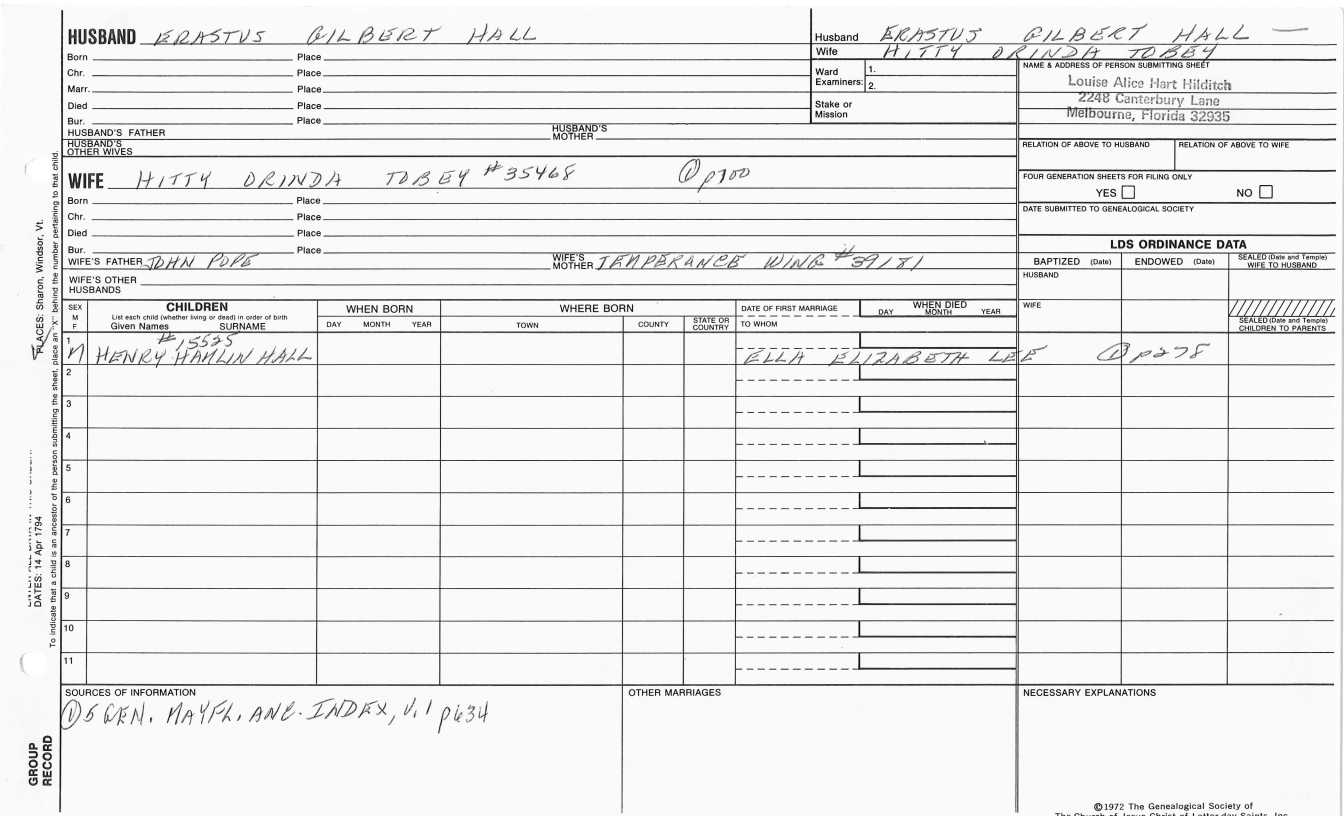 HUSBAND ERASTUS GILBERT HALL
Born Place
Chr. Place
Marr. Place
Died Place
Bur. Place
HUSBAND'S FATHER HUSBAND'S MOTHER
HUSBAND'S OTHER WIVES
Husband ERASTUS GILBERT HALL —
Wife HITTY ORINDA TOBEY
Ward Examiners: 1.
2.
Stake or Mission
NAME & ADDRESS OF PERSON SUBMITTING SHEET
Louise Alice Hart Hilditch
2248 Canterbury Lane
Melbourne, Florida 32935
RELATION OF ABOVE TO HUSBAND RELATION OF ABOVE TO WIFE
FOUR GENERATION SHEETS FOR FILING ONLY
YES NO
DATE SUBMITTED TO GENEALOGICAL SOCIETY
WIFE HITTY ORINDA TOBEY #35468 ① p700
Born Place
Chr. Place
Died Place
Bur. Place
WIFE'S FATHER JOHN POPE WIFE'S MOTHER TEMPERANCE WING #39181
WIFE'S OTHER HUSBANDS
LDS ORDINANCE DATA
BAPTIZED (Date) ENDOWED (Date) SEALED (Date and Temple) WIFE TO HUSBAND
HUSBAND
WIFE
SEALED (Date and Temple) CHILDREN TO PARENTS
SEX M F
CHILDREN
List each child (whether living or dead) in order of birth
Given Names SURNAME
WHEN BORN
DAY MONTH YEAR
WHERE BORN
TOWN COUNTY STATE OR COUNTRY
DATE OF FIRST MARRIAGE
TO WHOM
WHEN DIED
DAY MONTH YEAR
1 #15525
M HENRY HAMLIN HALL ELLA ELIZABETH LEE ① p278
2
3
4
5
6
7
8
9
10
11
SOURCES OF INFORMATION
① 5 GEN. MAYFL. ANC. INDEX, V.1 p634
OTHER MARRIAGES
NECESSARY EXPLANATIONS
©1972 The Genealogical Society of
The Church of Jesus Christ of Latter-day Saints, Inc.
PLACES: Sharon, Windsor, Vt.
DATES: 14 Apr 1794
To indicate that a child is an ancestor of the person submitting the sheet, place an "X" behind the number pertaining to that child.
GROUP RECORD